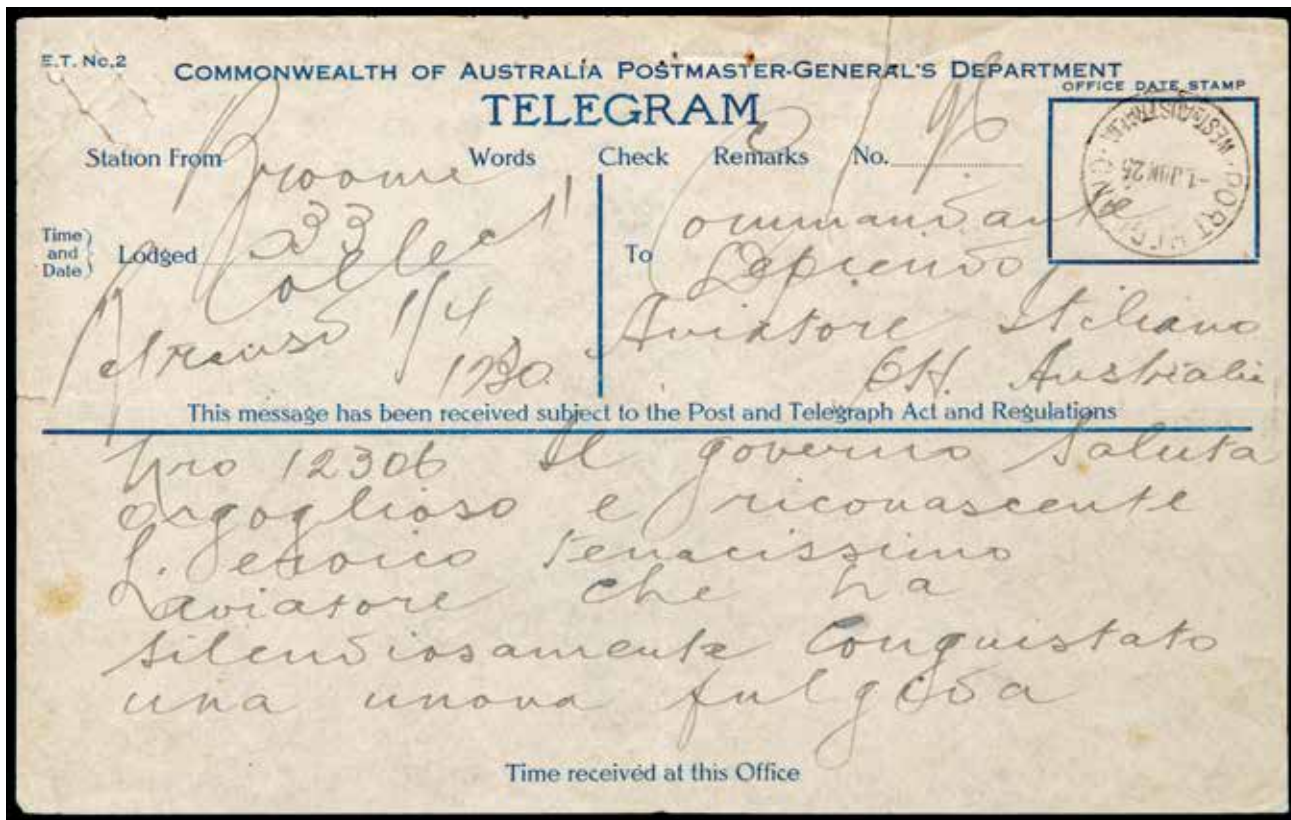 E.T. No.2
COMMONWEALTH OF AUSTRALIA POSTMASTER-GENERAL'S DEPARTMENT
TELEGRAM
OFFICE DATE STAMP
Station From Words Check Remarks No. 96
Broome
PORT HEDLAND WESTN AUSTRALIA
-1 JUN 25
Time and Date Lodged 33
To Commandante
Depiendo
1/4
Aviatore Italiano
1230
Australie
This message has been received subject to the Post and Telegraph Act and Regulations
Nro 12306 Il governo Saluta
orgoglioso e riconascente
tenacissimo
aviatore che ha
silendiosamente Conquistato
una unova fulgida
Time received at this Office